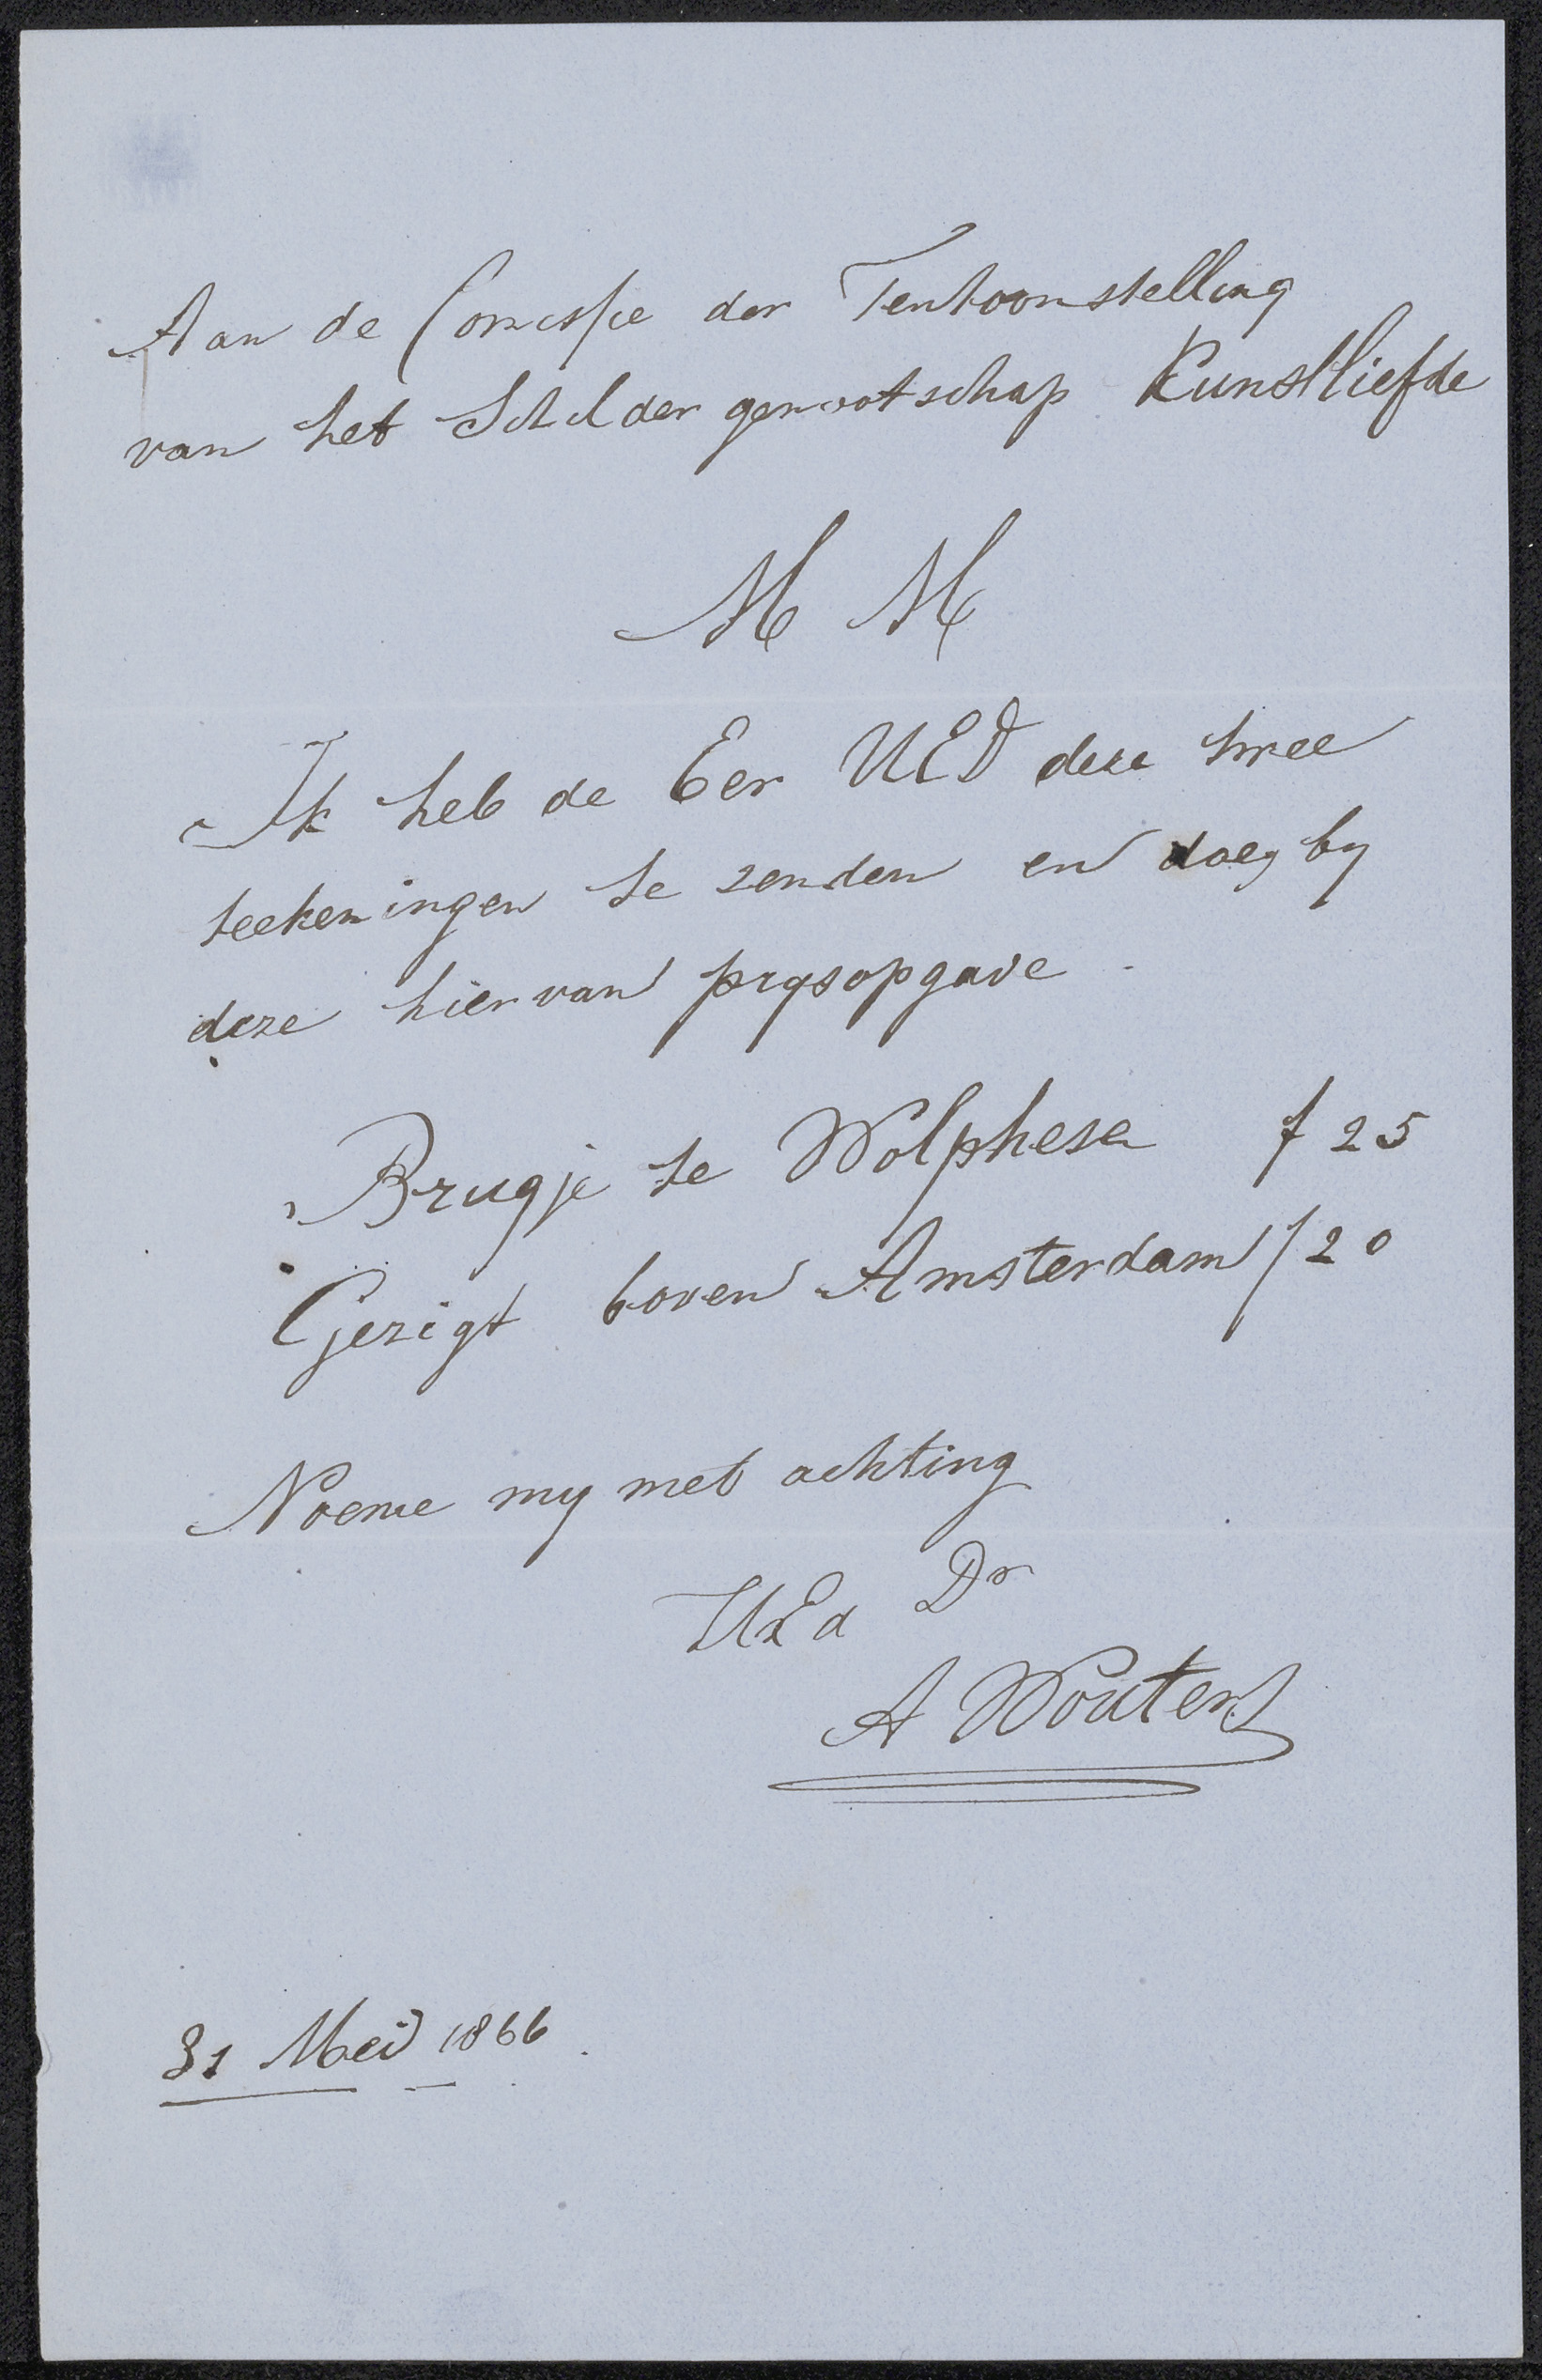 Aan de Comissie der Tentoonstelling
van het Schildergenootschap Kunstliefde
M M
Ik heb de Eer UED deze twee
teekeningen te zenden en doeg by
deze hiervan prysopgave.
Brugje te Wolphese f 25
Gezigt boven Amsterdam f 20
Noeme my met achting
UEd Dr
A Wouters
31 Mei 1866